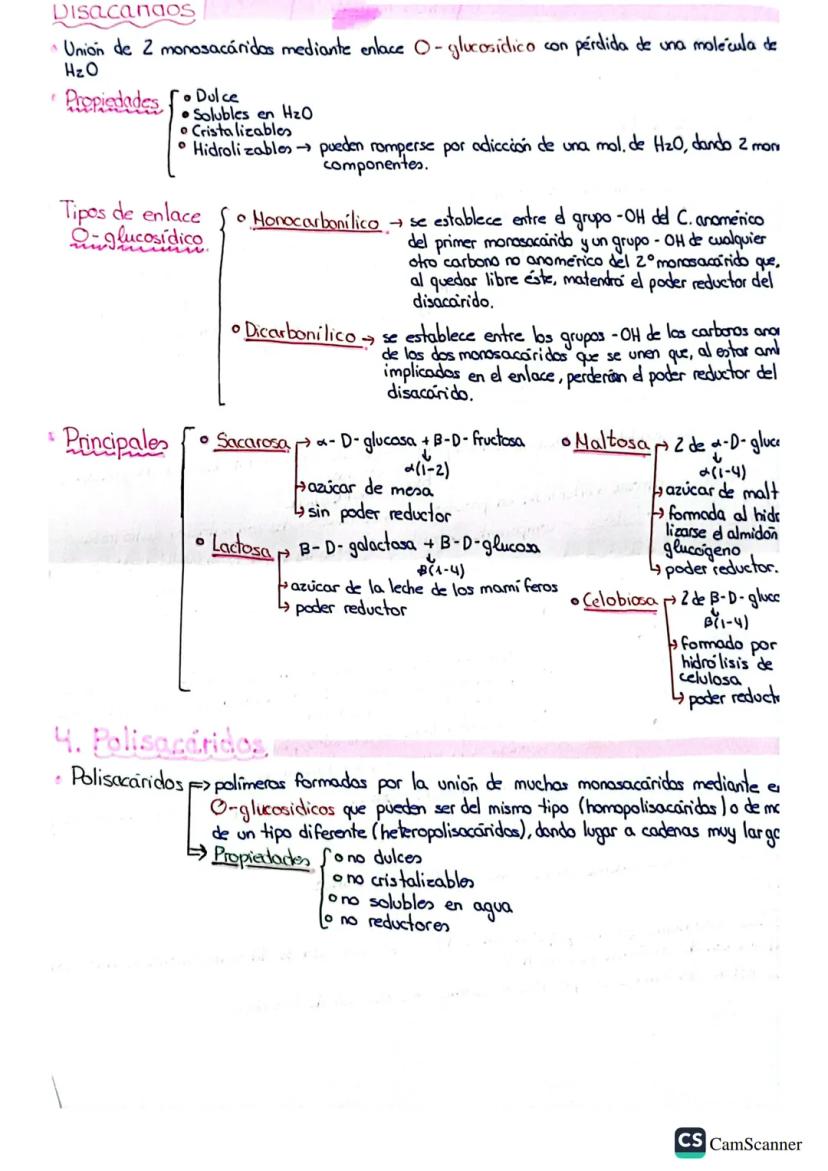 Disacáridos
Unión de 2 monosacáridos mediante enlace O-glucosídico con pérdida de una molécula de
H2O
Propiedades
• Dulce
• Solubles en H2O
• Cristalizables
• Hidrolizables → pueden romperse por adicción de una mol. de H2O, dando 2 mon
componentes.
Tipos de enlace
O-glucosídico
• Monocarbonílico → se establece entre el grupo -OH del C. anomérico
del primer monosacárido y un grupo -OH de cualquier
otro carbono no anomérico del 2º monosacárido que,
al quedar libre éste, matendrá el poder reductor del
disacárido.
• Dicarbonílico → se establece entre los grupos -OH de los carbonos ano
de los dos monosacáridos que se unen que, al estar amb
implicados en el enlace, perderán el poder reductor del
disacárido.
Principales
• Sacarosa → α-D-glucosa + B-D-fructosa
↓
α(1-2)
→ azúcar de mesa
→ sin poder reductor
• Lactosa → B-D-galactosa + B-D-glucosa
↓
β(1-4)
→ azúcar de la leche de los mamíferos
→ poder reductor
• Maltosa → 2 de α-D-gluco
↓
α(1-4)
→ azúcar de malt
→ formada al hidr
lizarse el almidón
glucógeno
→ poder reductor.
• Celobiosa → 2 de B-D-gluco
↓
β(1-4)
→ formado por
hidrólisis de
celulosa
→ poder reducto
4. Polisacáridos
• Polisacáridos => polímeros formados por la unión de muchos monosacáridos mediante e
O-glucosídicos que pueden ser del mismo tipo (homopolisacáridos) o de mo
de un tipo diferente (heteropolisacáridos), dando lugar a cadenas muy largo
=> Propiedades
• no dulces
• no cristalizables
• no solubles en agua
• no reductores
CS CamScanner